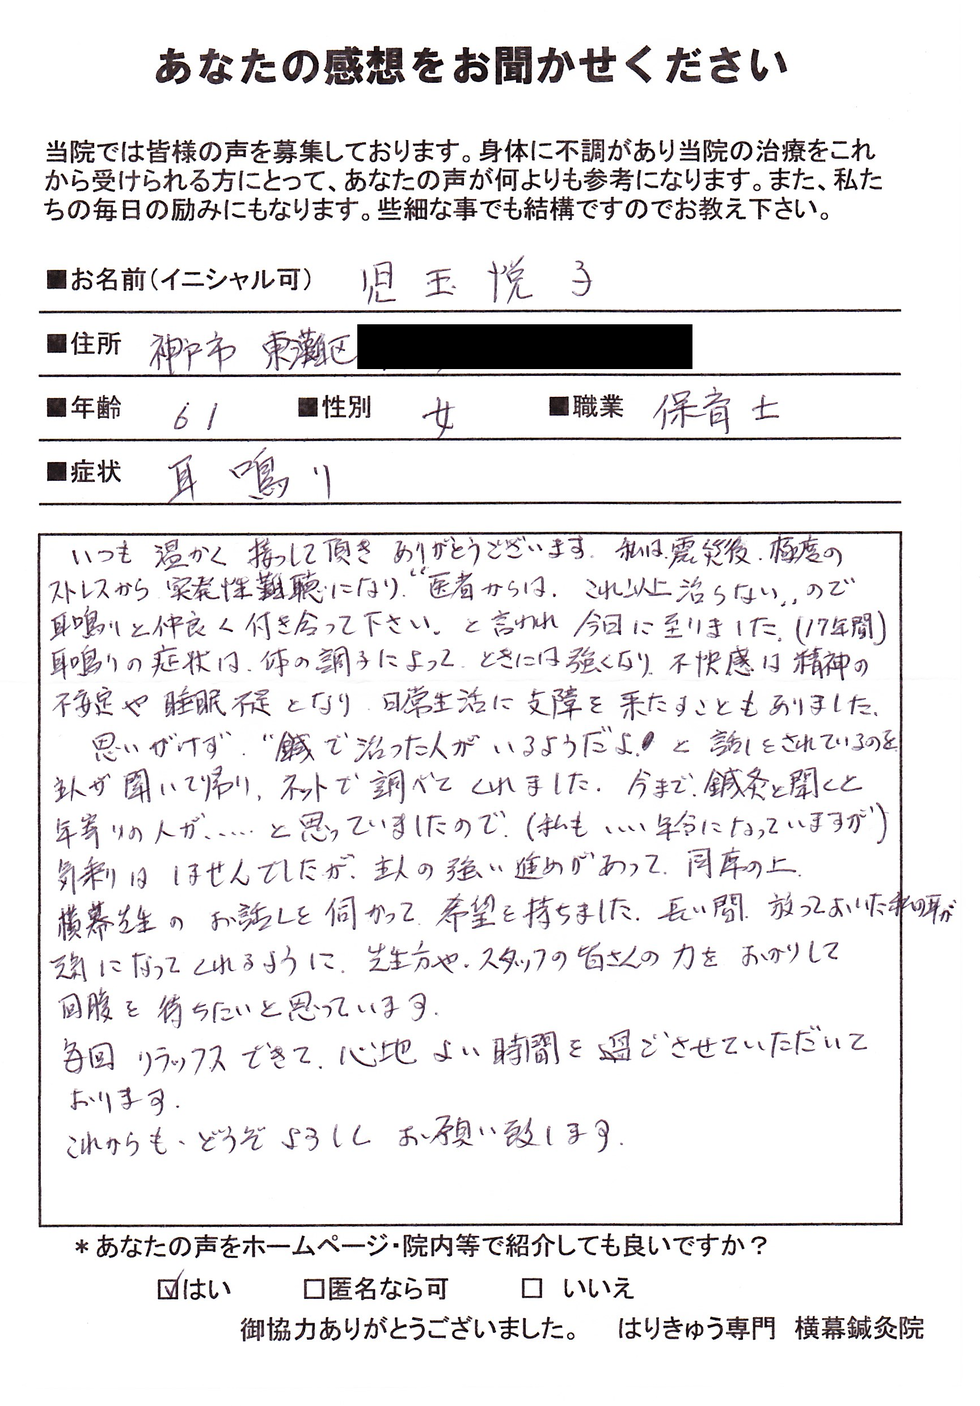 あなたの感想をお聞かせください
当院では皆様の声を募集しております。身体に不調があり当院の治療をこれ
から受けられる方にとって、あなたの声が何よりも参考になります。また、私た
ちの毎日の励みにもなります。些細な事でも結構ですのでお教え下さい。
■お名前(イニシャル可) 児玉悦子
■住所 神戸市 東灘区
■年齢 61 ■性別 女 ■職業 保育士
■症状 耳鳴り
いつも 温かく 接っして頂き ありがとうございます。私は、震災後、極度の
ストレスから 突発性難聴になり、“医者からは、これ以上治らない〟ので
耳鳴りと仲良く付き合って下さい。と言われ 今日に至りました。(17年間)
耳鳴りの症状は、体の調子によって、ときには強くなり、不快感は精神の
不安定や睡眠不足となり 日常生活に支障を来たすこともありました。
思いがけず、“鍼で治った人がいるようだよ!” と 話しをされているのを
主人が聞いて帰り、ネットで調べてくれました。今まで、鍼灸と聞くと
年寄りの人が、……と思っていましたので、(私も いい年令になっていますが)
気乗りはしませんでしたが、主人の強い進めがあって、同席の上、
横幕先生の お話しを伺かって、希望を持ちました。長い間、放っておいた私の耳が
元気になってくれるように、先生方や、スタッフの皆さんの力をおかりして
回腹を待ちたいと思っています。
毎回 リラックスできて、心地よい時間を過ごさせていただいて
おります。
これからも、どうぞよろしくお願い致します。
*あなたの声をホームページ・院内等で紹介しても良いですか?
☑はい □匿名なら可 □ いいえ
御協力ありがとうございました。 はりきゅう専門 横幕鍼灸院